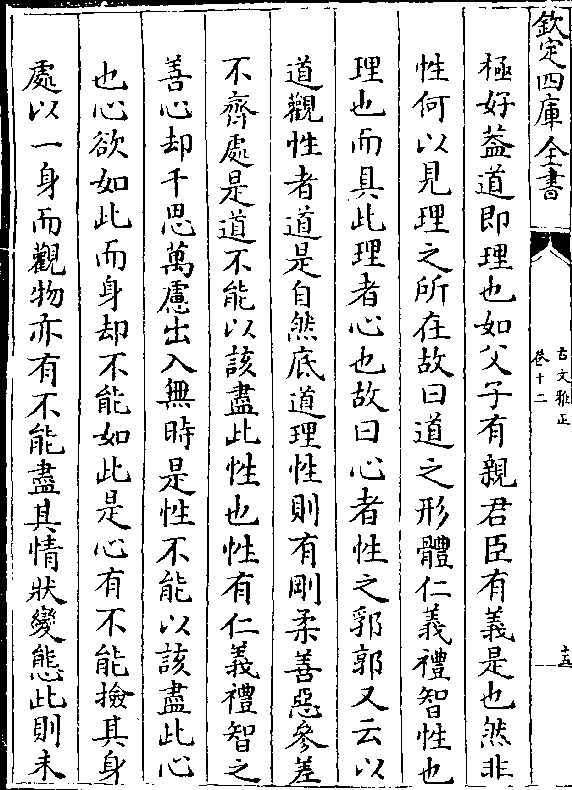 欽定四庫全書
古文雅正
卷十二
十五
極好葢道即理也如父子有親君臣有義是也然非
性何以見理之所在故曰道之形體仁義禮智性也
理也而具此理者心也故曰心者性之郛郭又云以
道觀性者道是自然底道理性則有剛柔善惡參差
不齊處是道不能以該盡此性也性有仁義禮智之
善心却千思萬慮出入無時是性不能以該盡此心
也心欲如此而身却不能如此是心有不能撿其身
處以一身而觀物亦有不能盡其情狀變態此則未